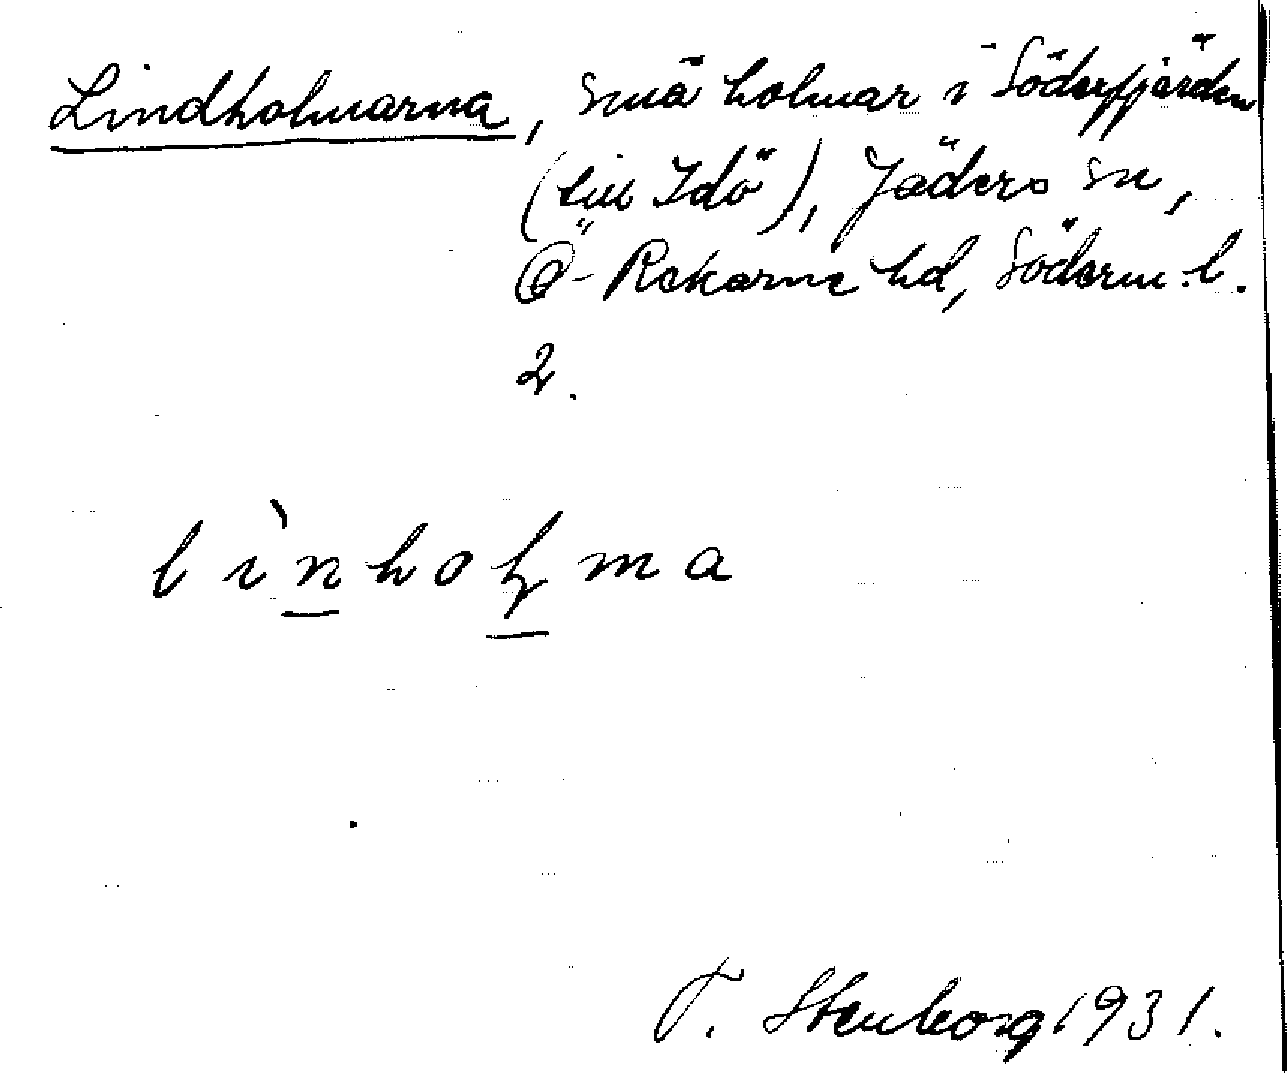 Lindholmarna, små holmar i Söderfjärden
(till Idö), Jäders sn,
Ö-Rekarne hd, Söderm. l.
2.
lìnhoɫma
T. Stenborg 1931.